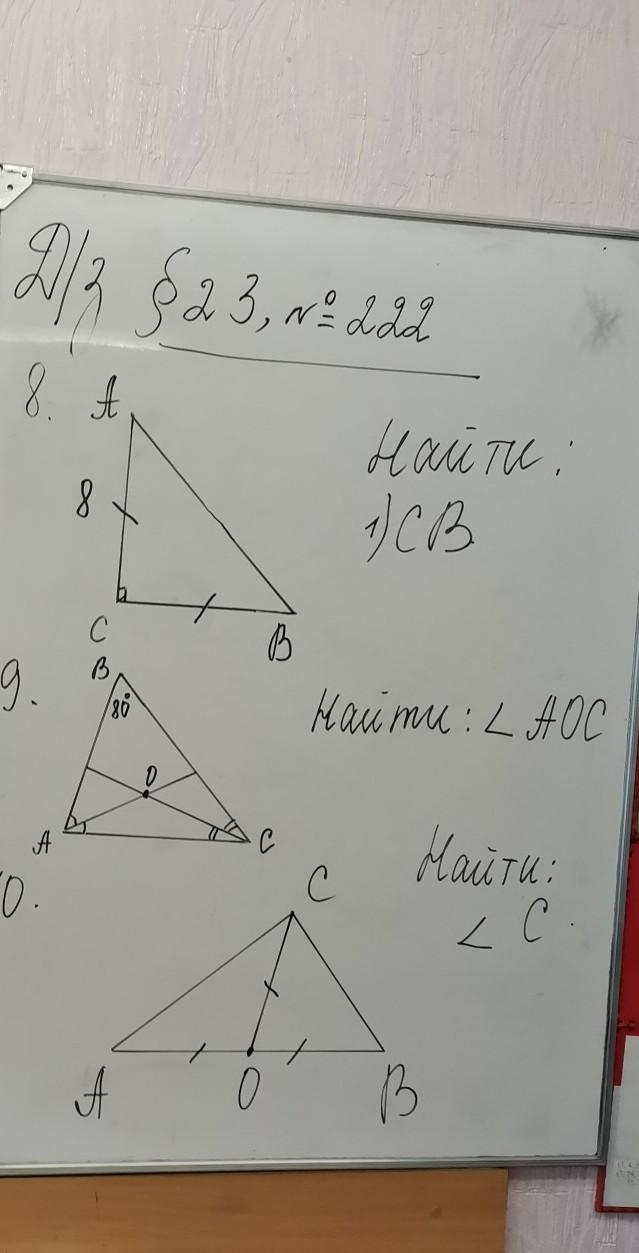 Д/з §23, №222
8. A
Найти:
8
1) CB
C
B
9. B
80°
Найти: ∠AOC
O
A
C
Найти:
∠C.
10.
C
A
O
B